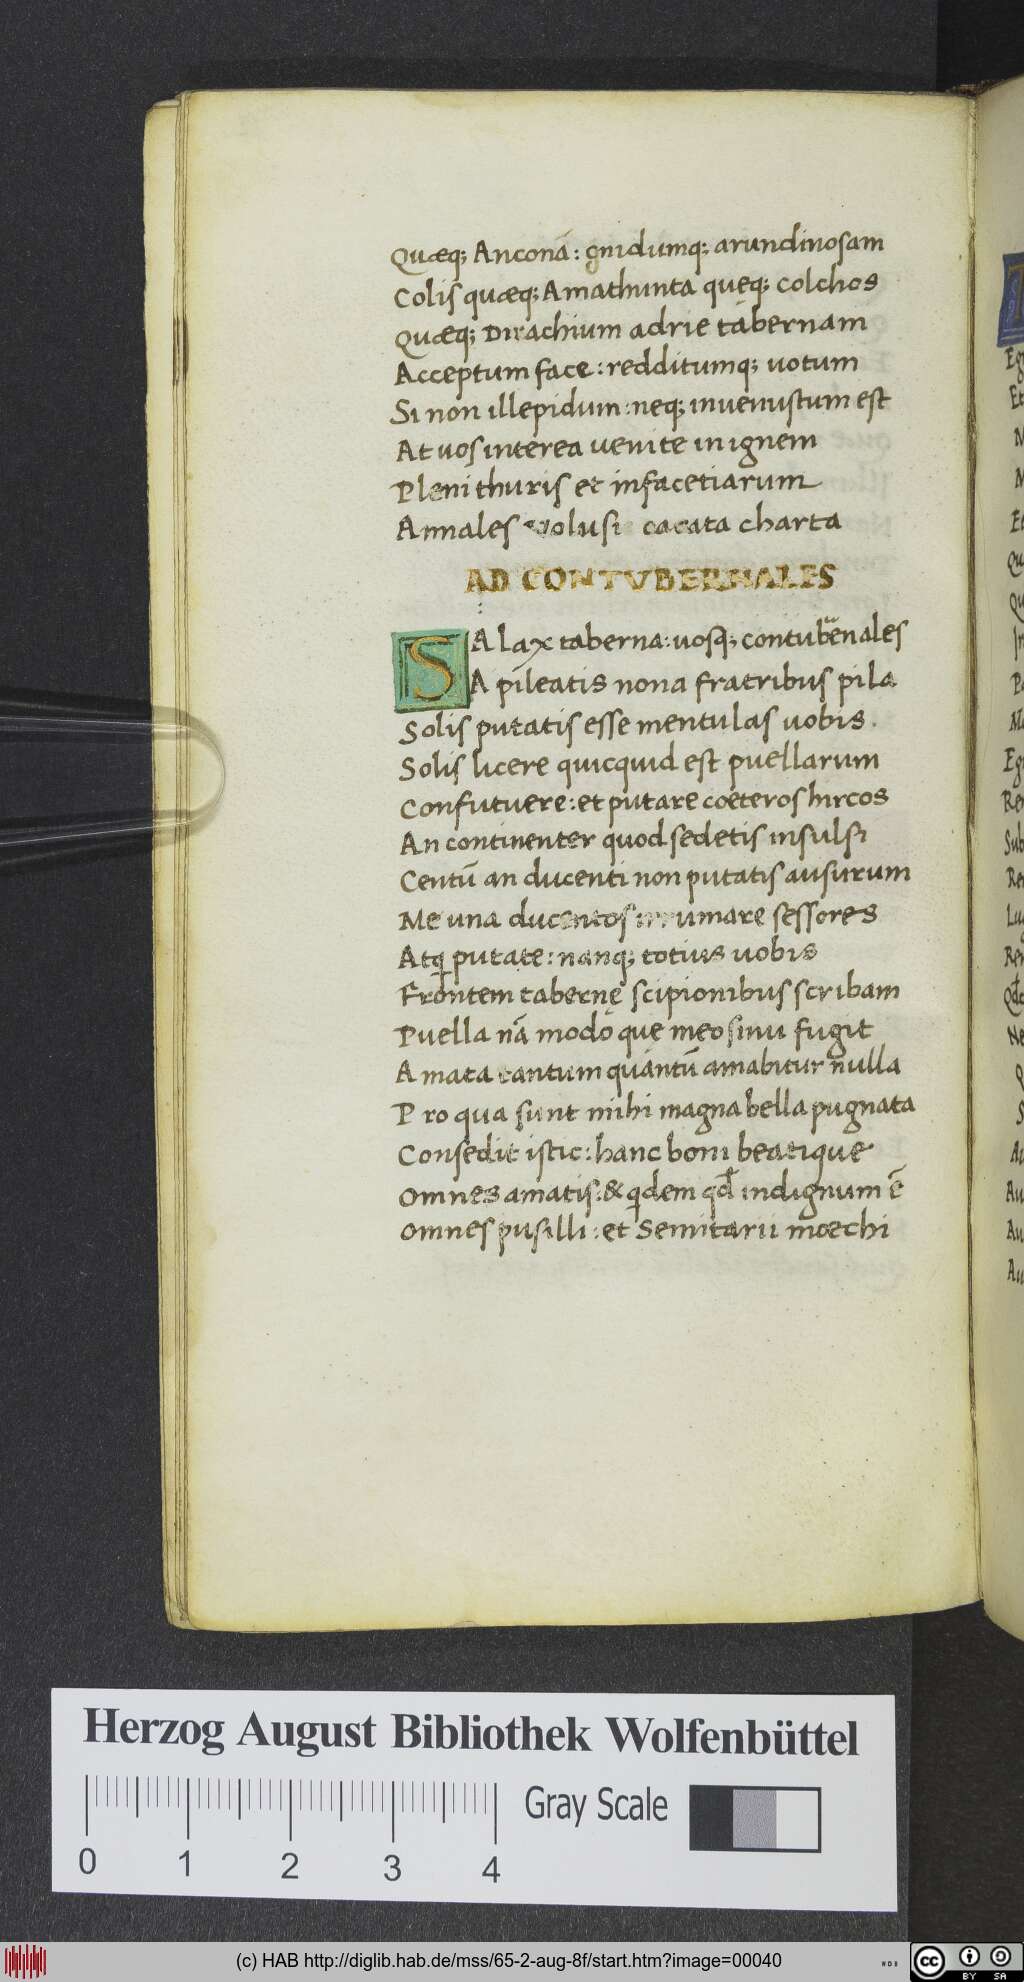 Quæq; Anconā: gnidumq; arundinosam
Colis quæq; Amathunta queq; colchos
Quæq; Dirachium adrie tabernam
Acceptum face: redditumq; uotum
Si non illepidum: neq; inuenustum est
At uos interea uenite in ignem
Pleni thuris et infacetiarum
Annales uolusi cacata charta
AD CONTVBERNALES
SAlax taberna: uosq; contubernales
A pileatis nona fratribus pila
Solis putatis esse mentulas uobis.
Solis licere quicquid est puellarum
Confutuere: et putare cœteros hircos
An continenter quod sedetis insulsi
Centū an ducenti non putatis ausurum
Me una ducentos irrumare sessores
Atq putate: nanq; totius uobis
Frontem tabernę scipionibus scribam
Puella nā modo que meo sinu fugit
Amata tantum quantū amabitur nulla
Pro qua sunt mihi magna bella pugnata
Consedit istic: hanc boni beatique
Omnes amatis: & qdem qd indignum ē
Omnes pusilli: et Semitarii mœchi
Herzog August Bibliothek Wolfenbüttel
Gray Scale
0 1 2 3 4
(c) HAB http://diglib.hab.de/mss/65-2-aug-8f/start.htm?image=00040
cc BY SA